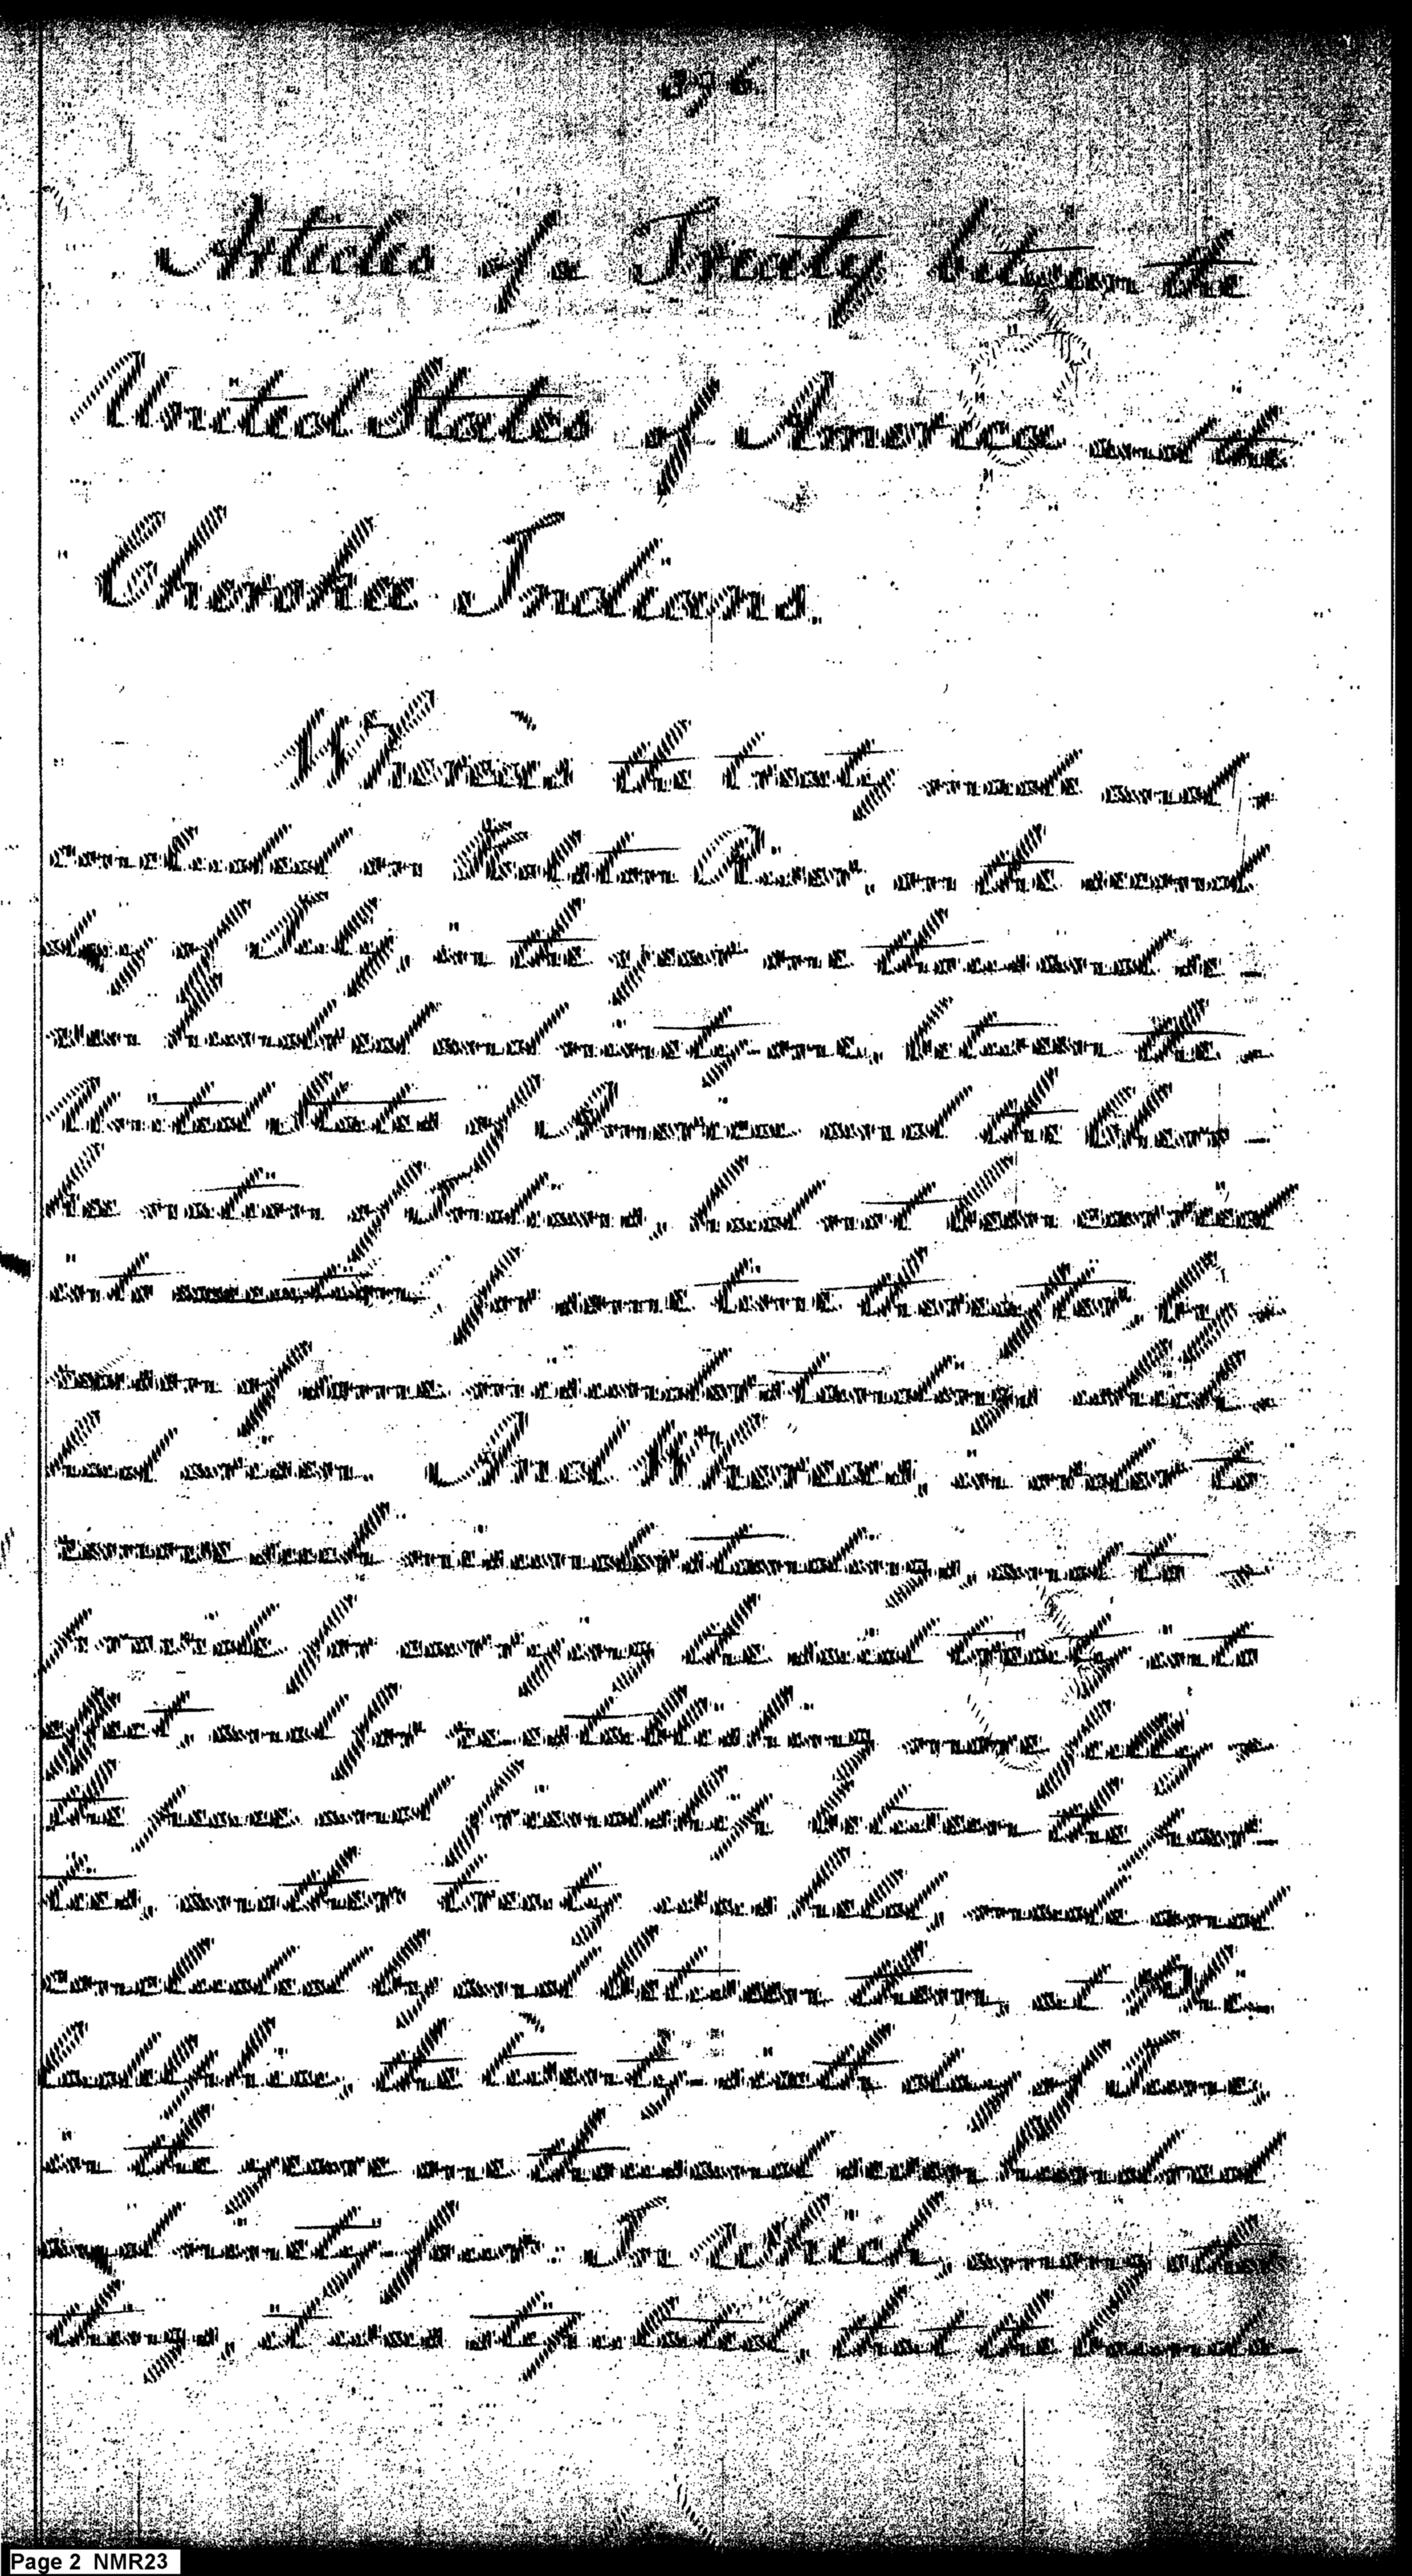 Articles of a Treaty between the
United States of America and the
Cherokee Indians.
Whereas the treaty made and
concluded on Holston River, on the second
day of July, in the year one thousand se-
ven hundred and ninety-one, between the
United States of America and the Chero-
kee nation of Indians, had not been carried
into execution for some time thereafter, by
reason of some misunderstandings which
had arisen. And Whereas, in order to
remove such misunderstandings, and to
provide for carrying the said treaty into
effect, and for re-establishing more fully
the peace and friendship between the par-
ties, another treaty was held, made and
concluded by and between them, at Phi-
ladelphia, the twenty-sixth day of June,
in the year one thousand seven hundred
and ninety-four: In which, among other
things, it was stipulated, that the bounda-
Page 2 NMR23